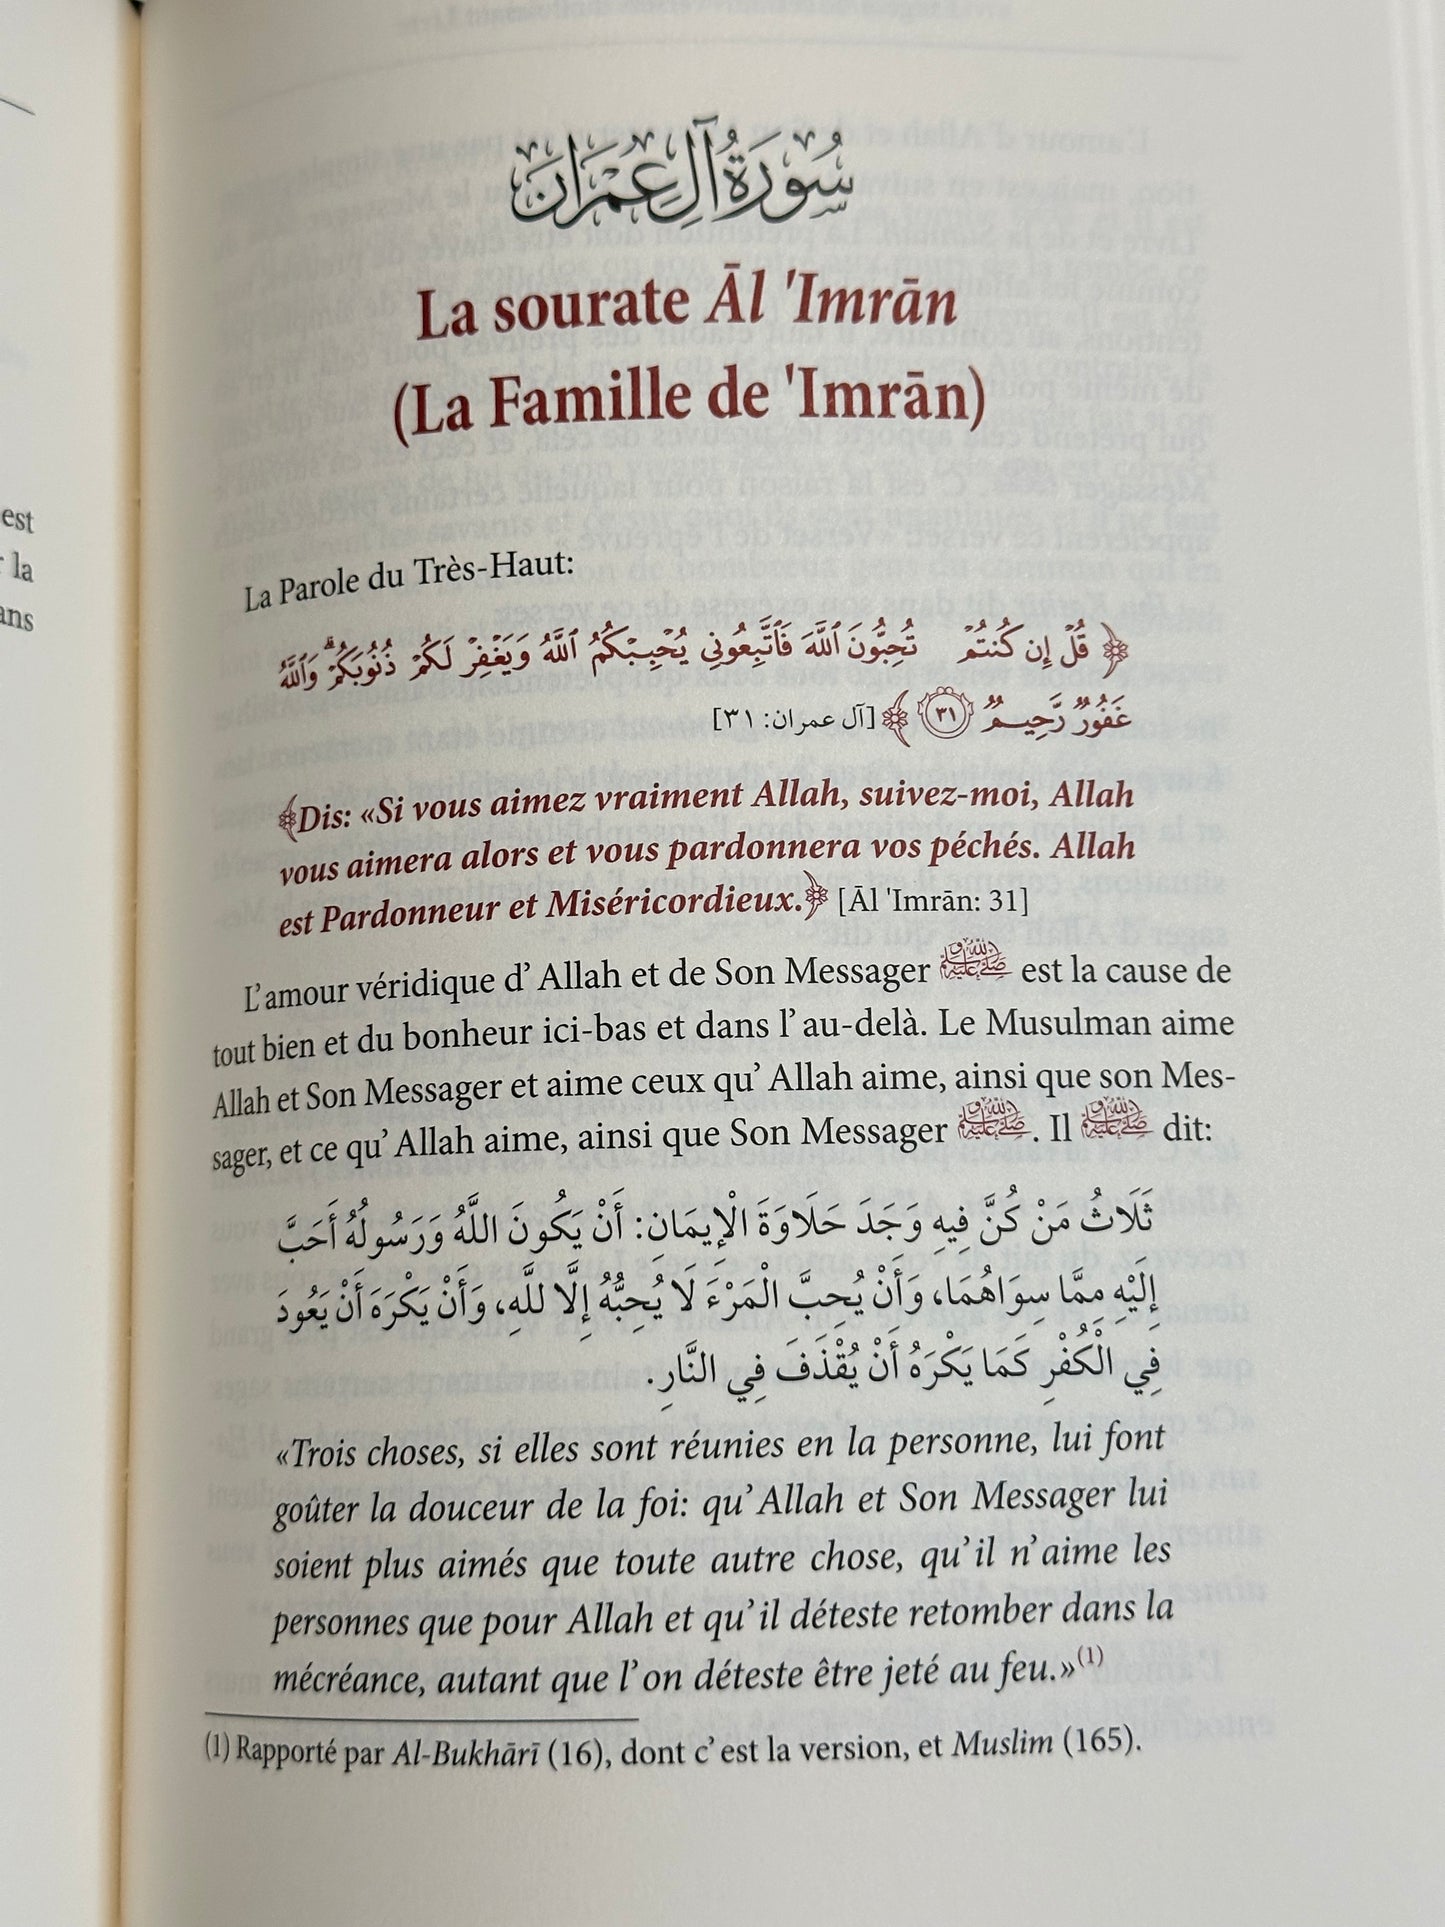 est
la
ans
سُورَةُ آلِ عِمْرَانَ
La sourate Āl 'Imrān
(La Famille de 'Imrān)
La Parole du Très-Haut:
﴿ قُلْ إِن كُنتُمْ تُحِبُّونَ ٱللَّهَ فَٱتَّبِعُونِي يُحْبِبْكُمُ ٱللَّهُ وَيَغْفِرْ لَكُمْ ذُنُوبَكُمْ ۗ وَٱللَّهُ
غَفُورٌ رَّحِيمٌ ٣١ ﴾ [آل عمران: ٣١]
﴾Dis: «Si vous aimez vraiment Allah, suivez-moi, Allah
vous aimera alors et vous pardonnera vos péchés. Allah
est Pardonneur et Miséricordieux.﴿ [Āl 'Imrān: 31]
L’amour véridique d’ Allah et de Son Messager ﷺ est la cause de
tout bien et du bonheur ici-bas et dans l’ au-delà. Le Musulman aime
Allah et Son Messager et aime ceux qu’ Allah aime, ainsi que son Mes-
sager, et ce qu’ Allah aime, ainsi que Son Messager ﷺ. Il ﷺ dit:
ثَلَاثُ مَنْ كُنَّ فِيهِ وَجَدَ حَلَاوَةَ الْإِيمَانِ: أَنْ يَكُونَ اللَّهُ وَرَسُولُهُ أَحَبَّ
إِلَيْهِ مِمَّا سِوَاهُمَا، وَأَنْ يُحِبَّ الْمَرْءَ لَا يُحِبُّهُ إِلَّا للَّهِ، وَأَنْ يَكْرَهَ أَنْ يَعُودَ
فِي الْكُفْرِ كَمَا يَكْرَهُ أَنْ يُقْذَفَ فِي النَّارِ.
«Trois choses, si elles sont réunies en la personne, lui font
goûter la douceur de la foi: qu’ Allah et Son Messager lui
soient plus aimés que toute autre chose, qu’ il n’ aime les
personnes que pour Allah et qu’ il déteste retomber dans la
mécréance, autant que l’ on déteste être jeté au feu.»(1)
(1) Rapporté par Al-Bukhārī (16), dont c’ est la version, et Muslim (165).